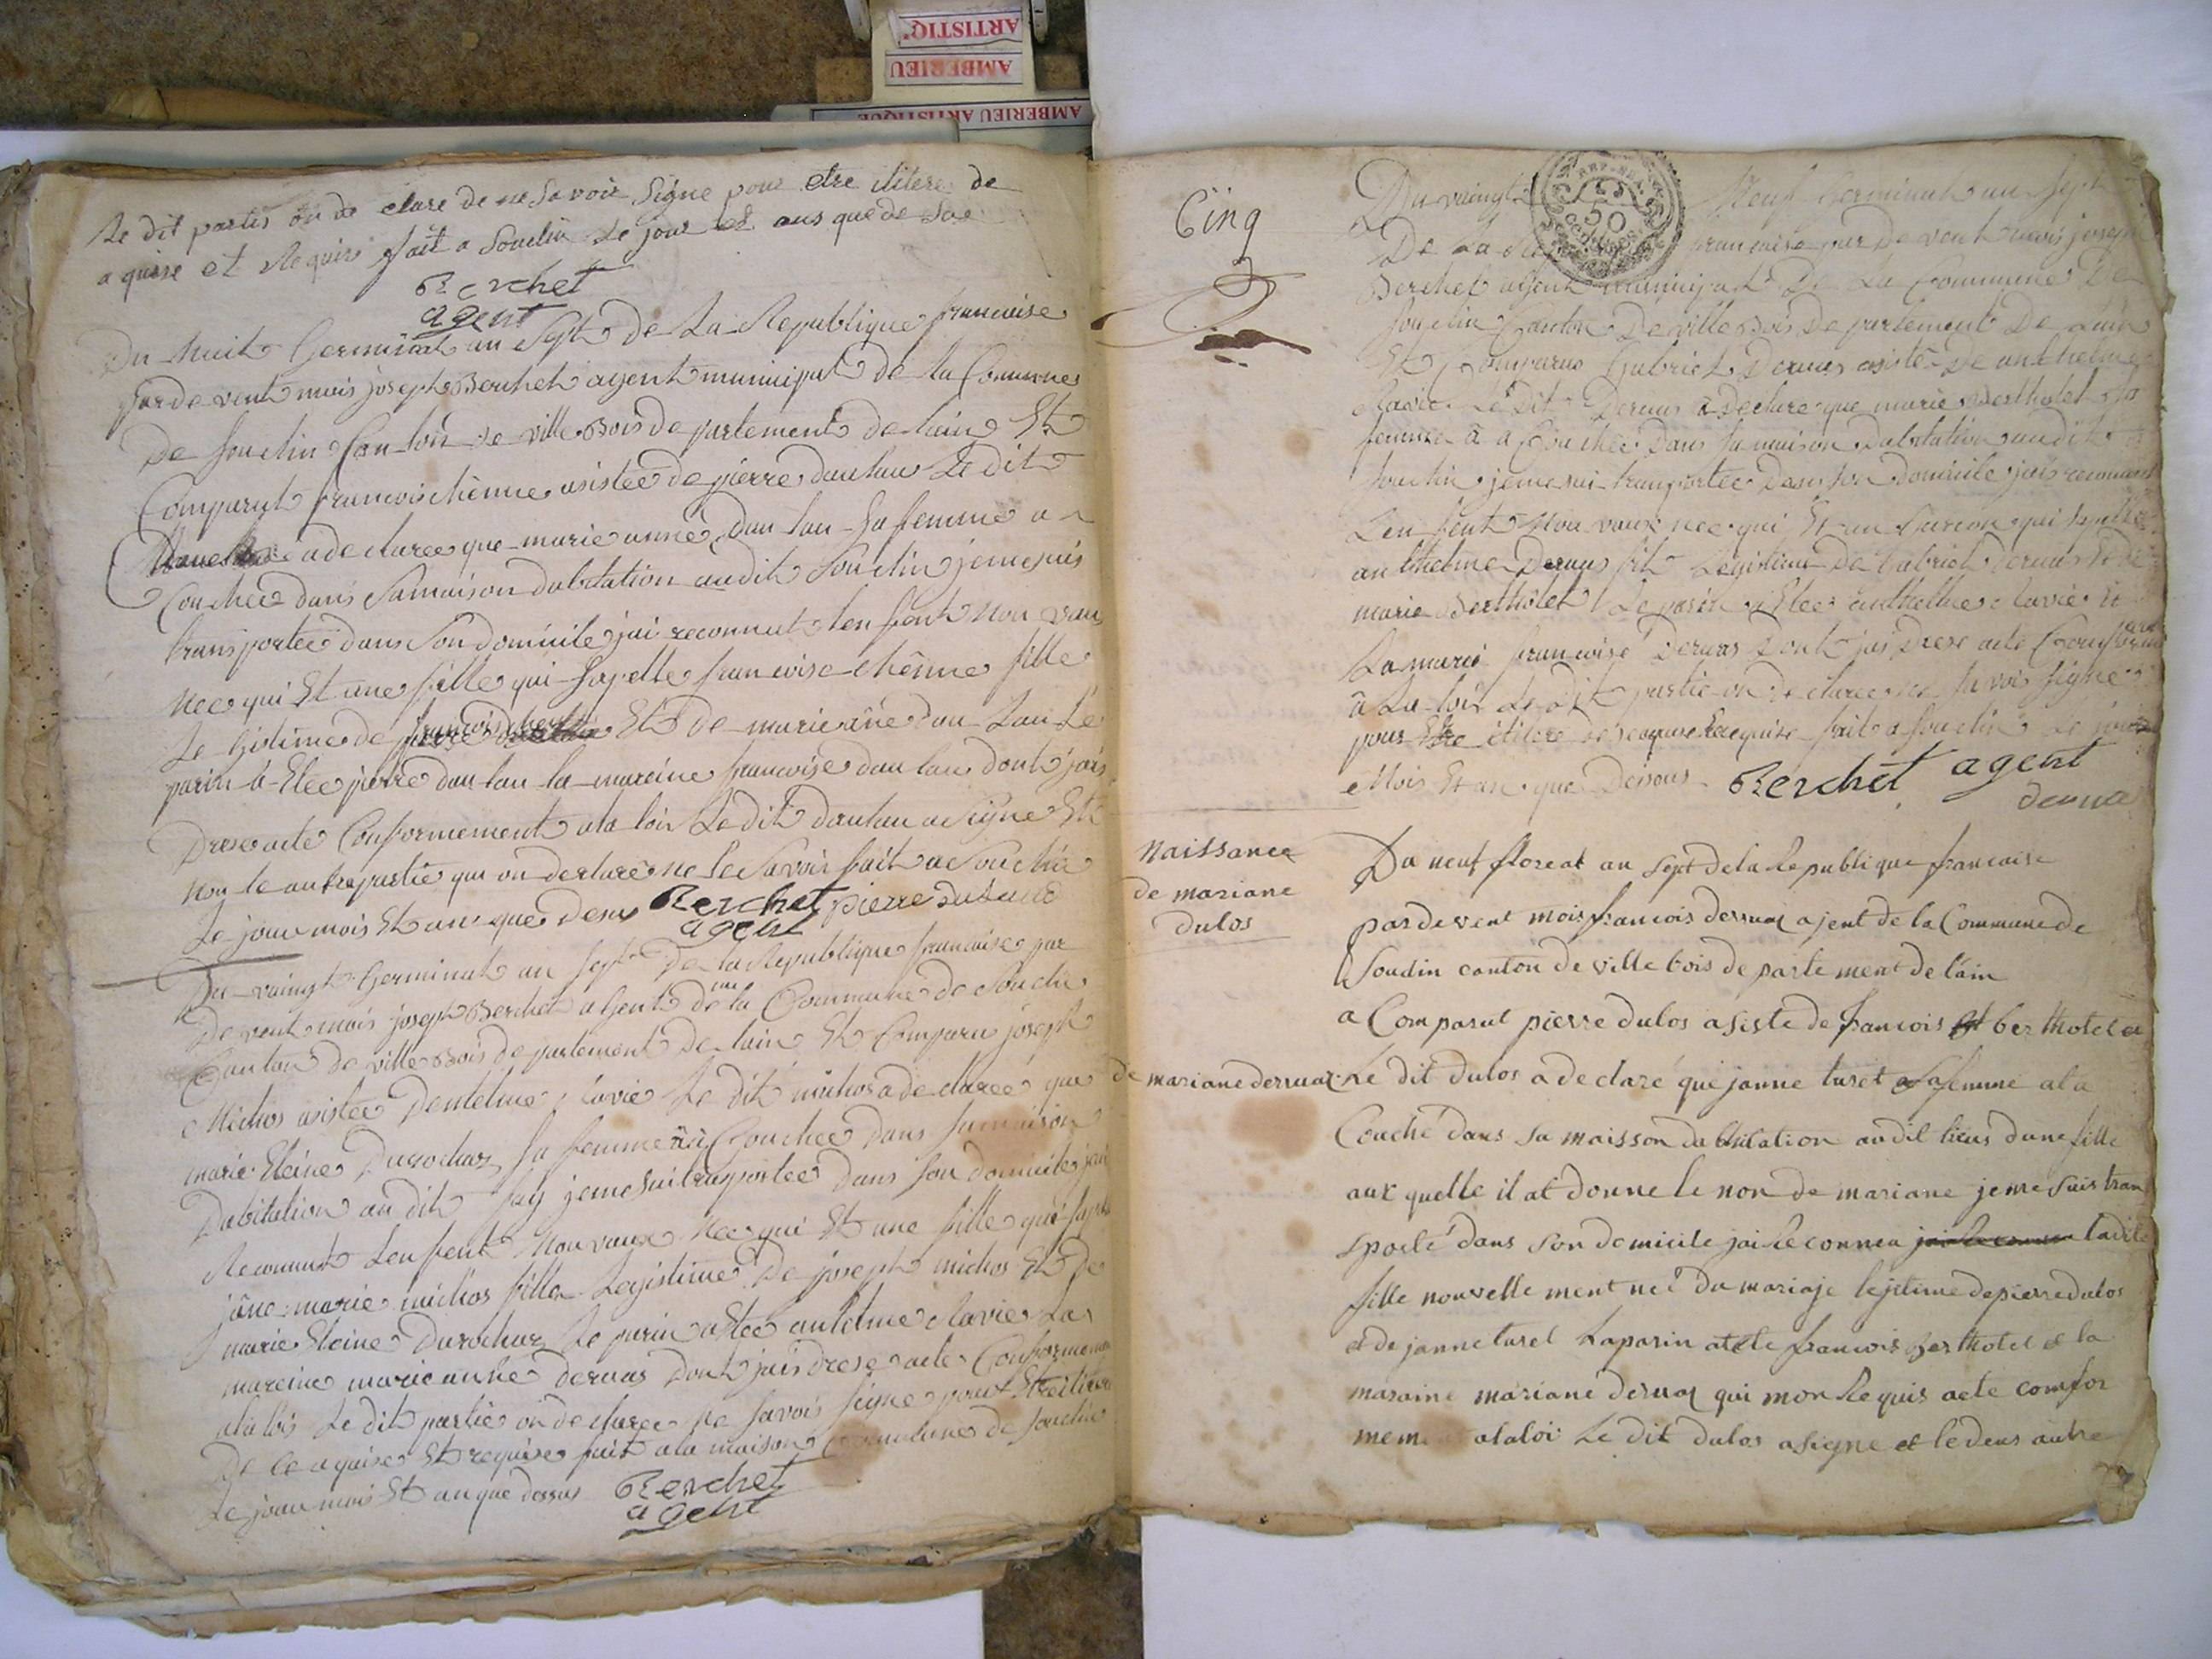 ARTISTIQ'
AMBERIEU
AMBERIEU ARTISTIQUE
Le dit partis on de clare de ne Savoir Signe pour etre ilitere de
a quise et Requis fait a Souclin Le jour et ans que de
Berchet
agent
Du huit Germinal an Sept de La Republique francaise
par de vent mois joseph Berchet agent municipal de la Commune
De Souclin Canton de ville Bois de partement de lain Et
Comparut francois chênne asistée de pierre dau lau Le dit
a declaree que marie anne dau lau Sa femme a
Couchee dans Sa maison dabitation audit Souclin je me suis
transportee dans Son domicile jai reconnut len fent nou vau
nee qui Et une fille qui Sapelle francoise chênne fille
Le Gistime de francois Et de marie âne dau Lau Le
parin a Etee pierre dau lau la mareine francoise dau lau dont jais
Drese acte Conformement ala loir Le dit daulau a Signe Et
non le autre partie qui on declare ne le Savoir fait a Souclin
Le jour mois Et an que desus Berchet pierre
agent
Du vaingt Germinal an Sept De la Republique francaise par
De vent mois joseph Berchet agent de la Commune de Souclin
Canton de ville Bois de partement De lain Et Comparu joseph
Michos asistee Dentelme clavie Le dit michos a declaree que
marie Eleine Durochaz Sa femme a Couchee Dans Sa maison
Dabitation au dit Say je me Sui transportee Dans Son domicile jai
Reconnut Lenfent Nouvaux Nee qui Et une fille que Sapelle
jâne marie michos fille Legistime De joseph michos Et De
marie Eleine Durochaz Le parin a Etee antelme clavie La
mareine marie anne deruas Dont jais drese acte Conformement
ala loi Le dit partie on declaree Ne Savois Signe pour Etre ilitere
De ce aquise Et requise fait ala maison Commune de Souclin
Le jour mois Et an que dessus Berchet
agent
Cinq
Du vaingt Neuf Germinal an Sept
De La francaise par De vent mois joseph
Berchet agent municipal De La Commune De
Souclin Canton De ville Bois De partement De Lain
Et Comparus Gabriel Deruas asistée De anthelme
clavie Le Dit Deruas a Declare que marie Berthelet Sa
femme â a Couchée Dans Sa maison Dabitation audit
Souclin je me sui transportee Dans Son Domicile jais reconnut
Len fent Nou vaux nee qui Et un Garcon qui Sapelle
anthelme Deruas fils Legistime De Gabriel Deruas Et de
marie Berthelet Le parin a Etee anthelme clavie Et
La marei francoise Deruas Dont jais Drese acte Conforme
à La loi Le Dit partie on Declaree ne Savois Signe
pour Etre ilitere de requise fait a Souclin Le jour
Mois Et an que Desous Berchet agent
Naissance
de mariane
dulos
Du neuf floreal an Sept de la Republique francaise
par de vent mois francois derruaz ajent de la Commune de
Soudin canton de ville bois de parte ment de l'ain
a Comparut pierre dulos asiste de francois berthotel et
de mariane derruaz Le dit dulos a declaré que janne turet sa femme ala
Couché dans sa maisson dabitation audit lieus dune fille
aux quelle il at donne le non de mariane je me suis tran
sporté dans son domicile jai Reconnu ladite
fille nouvelle ment neé du mariaje lejitime de pierre dulos
et de janne turel Laparin at ete francois berthotel et la
maraine mariane deruaz qui mon Requis acte comfor
mem alaloi Le dit dulos a signe et le deus autre